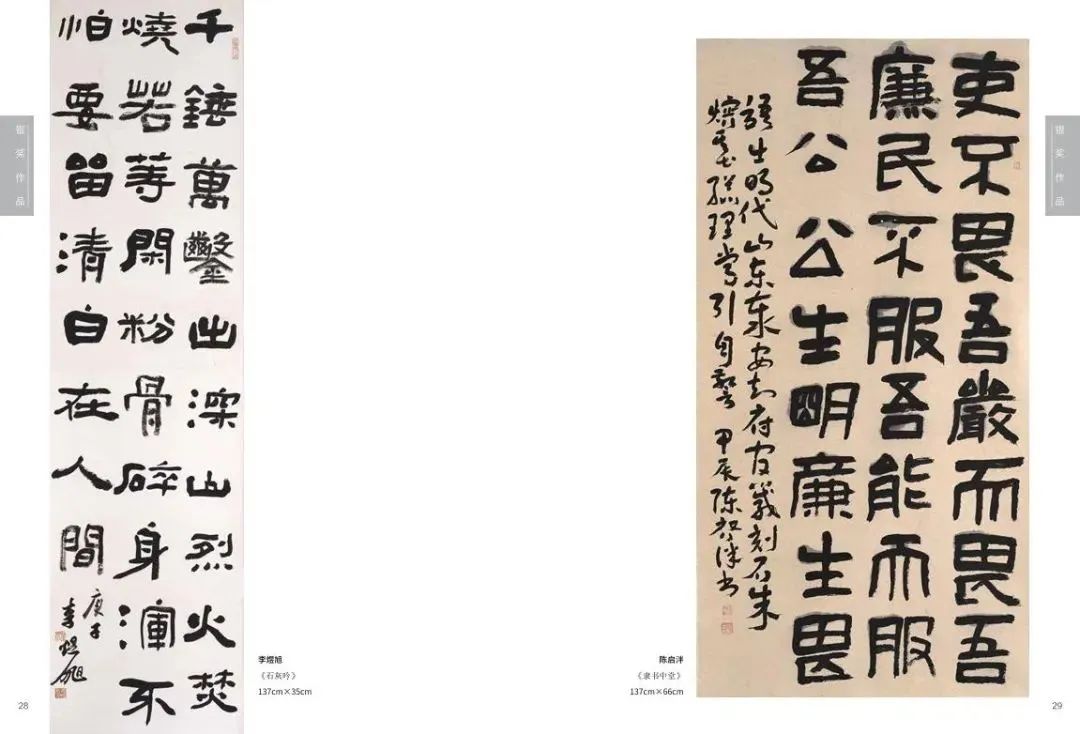 银奖作品
千錘萬鑿出深山烈火焚
燒若等閑粉骨碎身渾不
怕要留清白在人間
庚子
李煜旭
李煜旭
《石灰吟》
137cm×35cm
28
吏不畏吾嚴而畏吾
廉民不服吾能而服
吾公公生明廉生畏
語出明代山东泰安知府官箴刻石朱
熔基総理常引自警 甲辰陈启泮书
陈启泮
《隶书中堂》
137cm×66cm
29
银奖作品